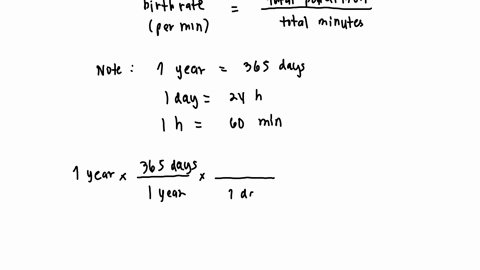 birth rate
(per min) = total population / total minutes
Note : 1 year = 365 days
1 day = 24 h
1 h = 60 min
1 year × 365 days / 1 year × ___ / 1 da